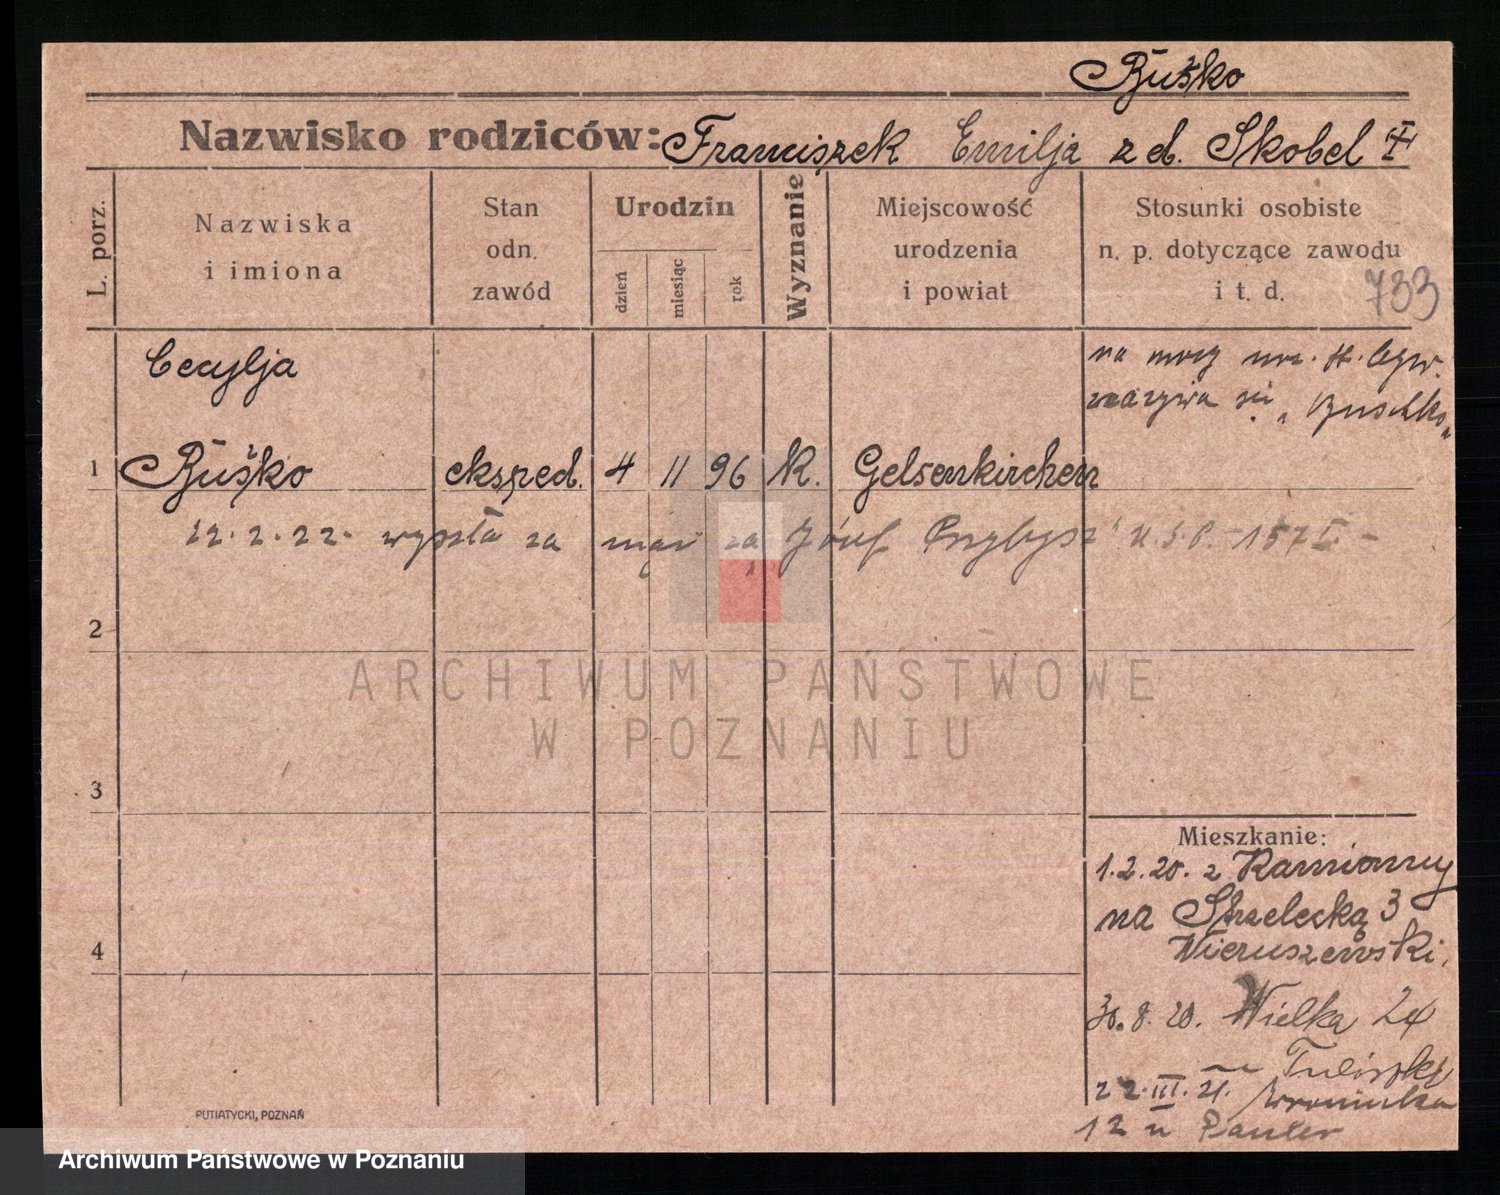 Buśko
Nazwisko rodziców: Franciszek Emilja z d. Skobel
L. porz.
Nazwiska
i imiona
Stan
odn.
zawód
Urodzin
dzień
miesiąc
rok
Wyznanie
Miejscowość
urodzenia
i powiat
Stosunki osobiste
n. p. dotyczące zawodu
i t. d.
733
Cecylja
na mocy
nazywa się „Buschko"
1 Buśko eksped. 4 11 96 K. Gelsenkirchen
22.2.22. wyszła za mąż za „Józef Przybysz"
2
3
4
Mieszkanie:
1.2.20. z Kamionny
na Strzelecką 3
Wieruszewski.
30.8.20. Wielka 24
22.III.21.
12 u Pauter
PUTIATYCKI, POZNAŃ
ARCHIWUM PAŃSTWOWE
W POZNANIU
Archiwum Państwowe w Poznaniu